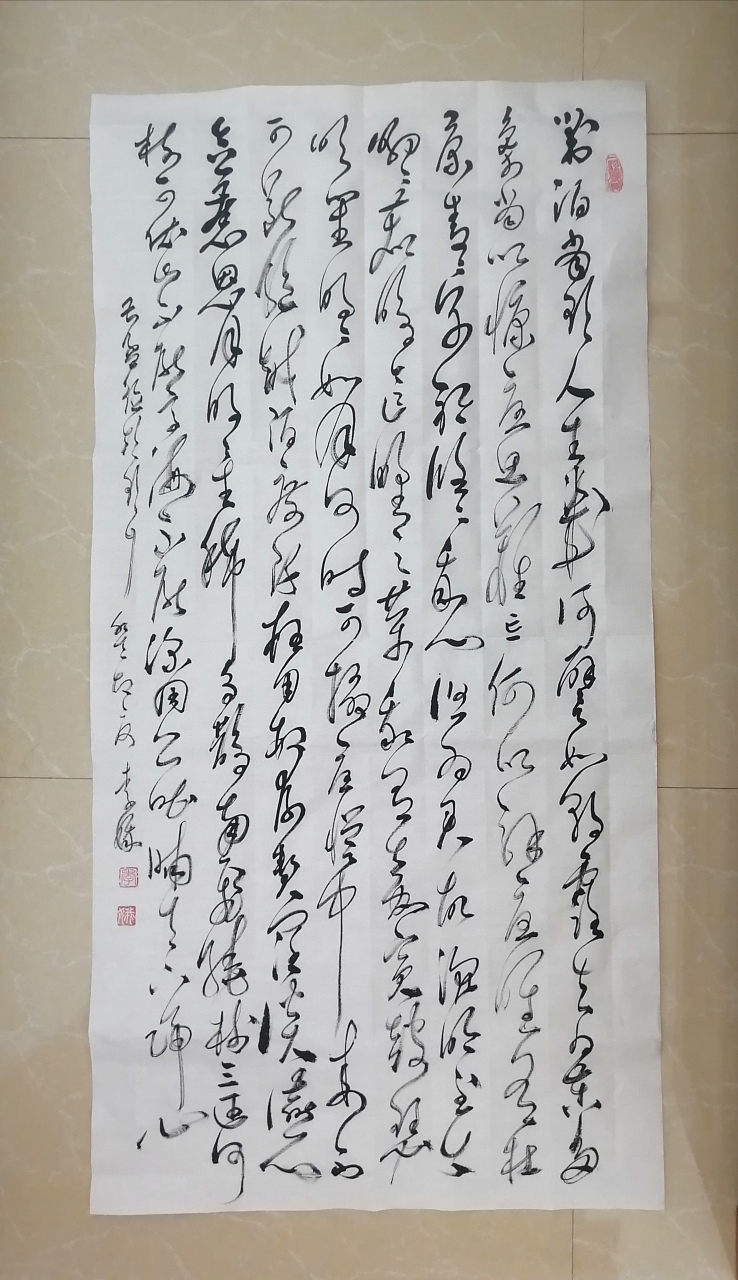 對酒當歌人生幾何譬如朝露去日苦多
慨當以慷憂思難忘何以解憂唯有杜
康青青子衿悠悠我心但為君故沉吟至今
呦呦鹿鳴食野之苹我有嘉賓鼓瑟
吹笙明明如月何時可掇憂從中來不
可斷越陌度阡枉用相存契闊談讌心
念舊恩月明星稀烏鵲南飛繞樹三匝何
枝可依山不厭高海不厭深周公吐哺天下歸心
曹操短歌行 李